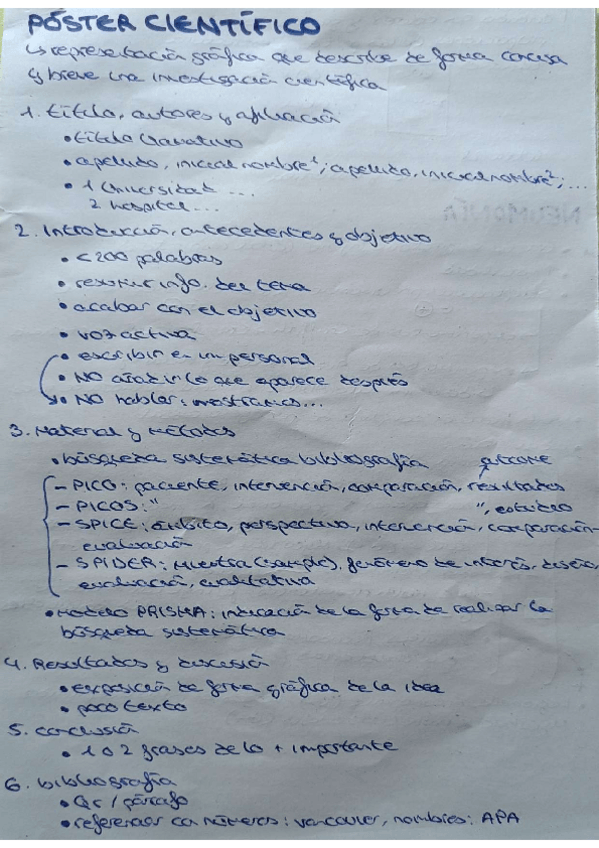 PÓSTER CIENTÍFICO
↳ representación gráfica que describe de forma concisa
y breve una investigación científica
1. título, autores y afiliación
• título llamativo
• apellido, inicial nombre¹; apellido, inicial nombre²; ...
• 1 Universidad ...
2 hospital ...
2. Introducción, antecedentes y objetivo
• < 200 palabras
• resumir info. del tema
• acabar con el objetivo
• voz activa
• escribir en impersonal
• NO añadir lo que aparece después
• NO hablar: mostramos...
3. Material y métodos
• búsqueda sistemática bibliografía outcome
– PICO: paciente, intervención, comparación, resultados
– PICOS: " ", estudio
– SPICE: ámbito, perspectiva, intervención, comparación
evaluación
– SPIDER: muestra (sample), fenómeno de interés, diseño,
evaluación, cualitativa
• Modelo PRISMA: indicación de la forma de realizar la
búsqueda sistemática
4. Resultados y discusión
• exposición de forma gráfica de la idea
• poco texto
5. conclusión
• 1 o 2 frases de lo + importante
6. bibliografía
• Qr / párrafo
• referencias con números: vancouver, nombres: APA
NEUMONÍA